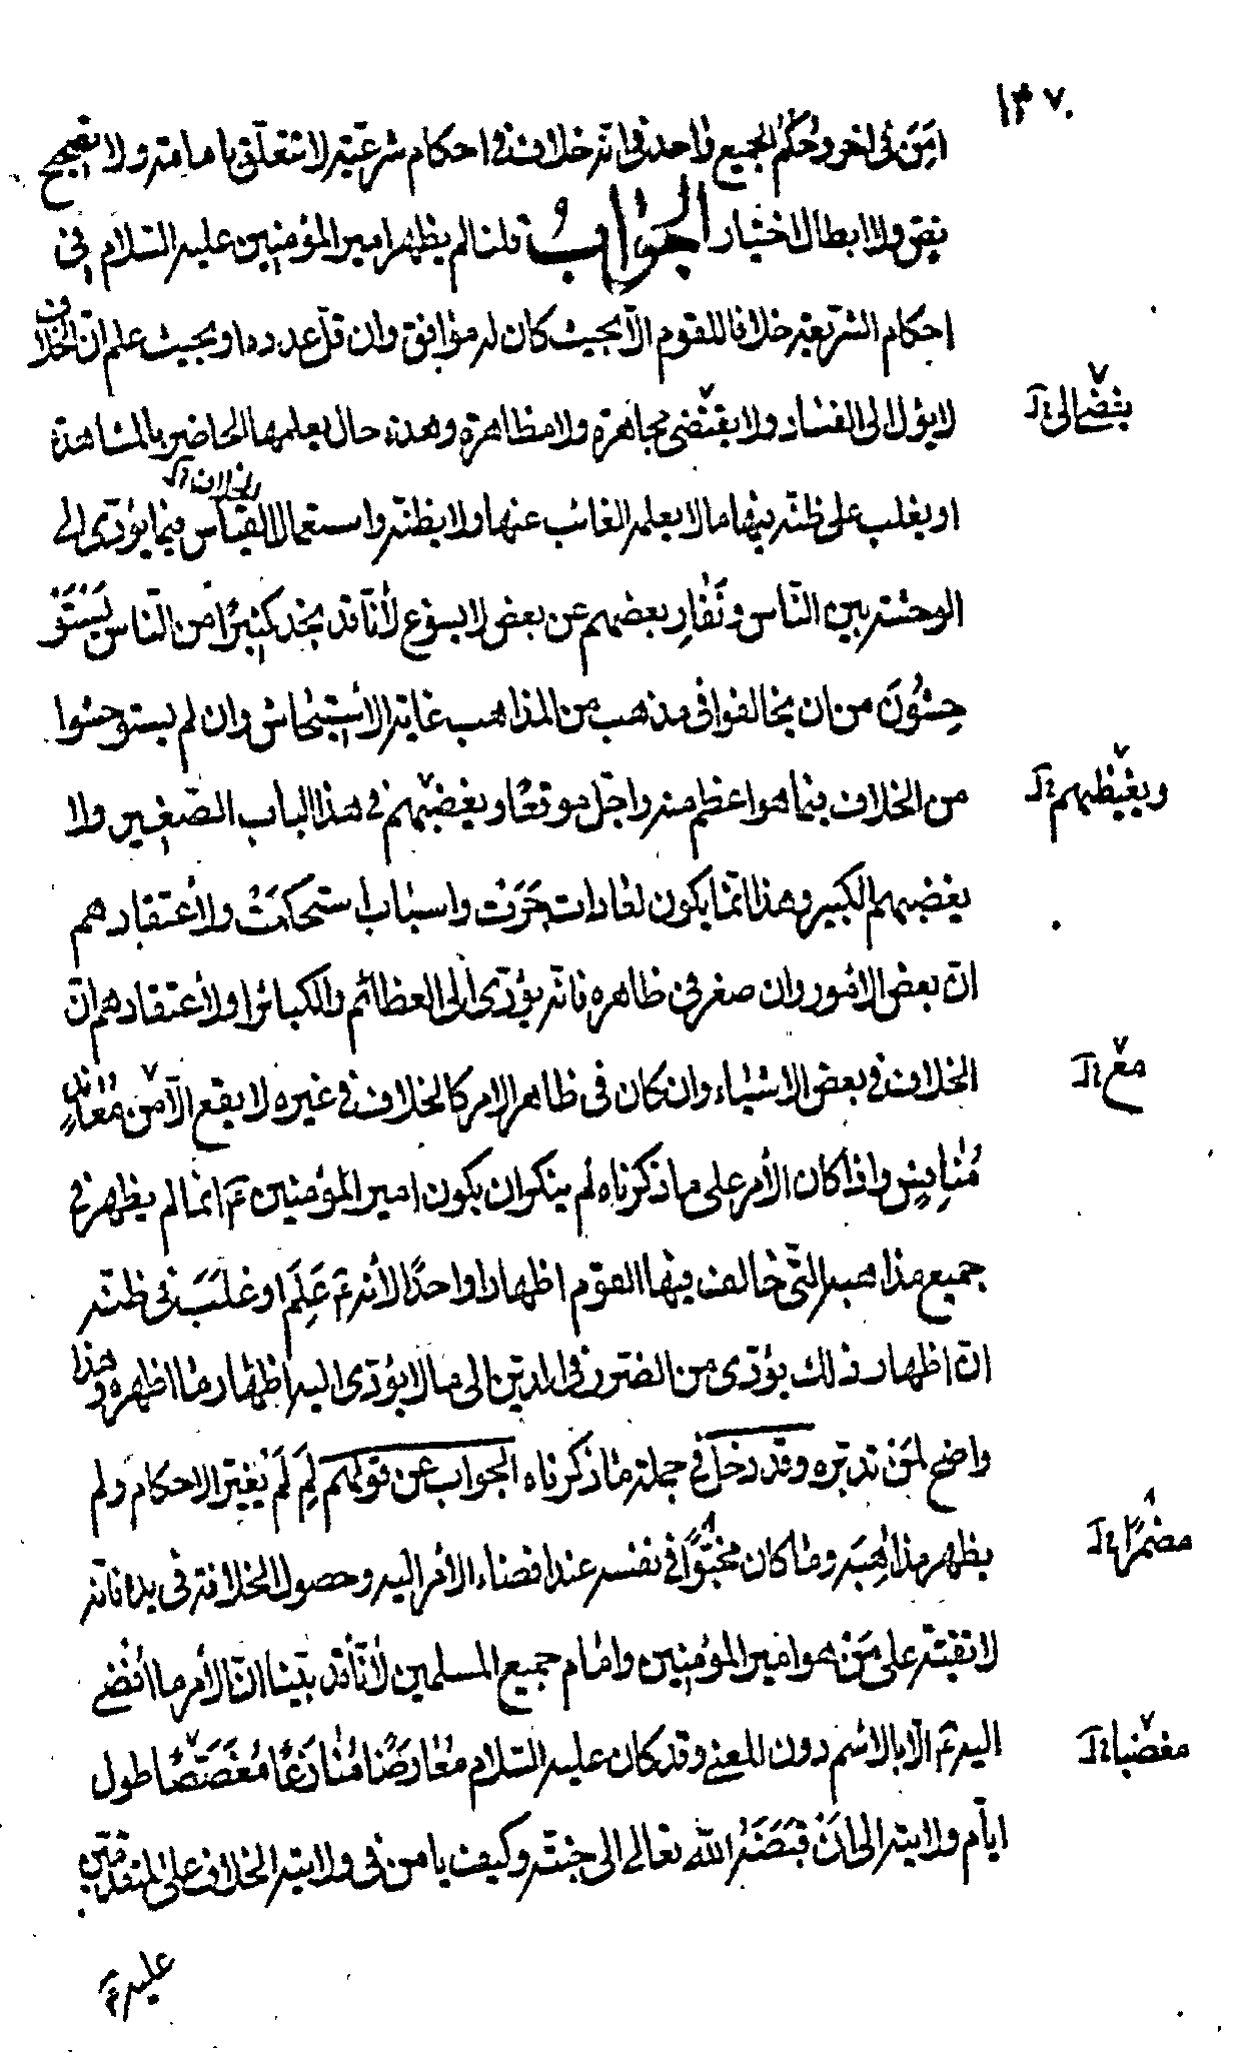 ١٣٧٠
امِنَ فى اخر وحُكمُ الجميع واحد فى انّه خلاف فى احكام شرعيّة لا تتعلّق بامامة ولا تصحيح
نص ولا ابطال اختيار الجواب قلنا لم يظهر امير المؤمنين عليه السّلام فى
احكام الشريعة خلافا للقوم الّا بحيث كان له موافق وان قلّ عدده او بحيث علم انّ الخلاف
لا يؤل الى الفساد ولا يقتضى مجاهرة ولا مظاهرة وهذه حال يعلمها الحاضر بالمشاهدة
يفضى الى
او يغلب على ظنّه فيها ما لا يعلمه الغائب عنها ولا يظنّه واستعمال القياس فيما يؤدّى الى
الخلاف
الوحشة بين النّاس ونَفارِ بعضهم عن بعض لا يسوغ لأنّا قد نجد كثيرًا من النّاس يَسْتَوْ
حِشُونَ من ان يخالفوا فى مذهب من المذاهب غاية الاستيحاش وان لم يستوحشوا
من الخلاف فيما هو اعظم منه واجلّ موقعًا ويغضبهم فى هذا الباب الصّغير ولا
ويغيظهم
يغضبهم الكبير وهذا انّما يكون لعادات جَرَت واسباب استحكمَتْ ولأعتقادهم
انّ بعض الامور وان صغر فى ظاهره فانّه يؤدّى الى العظائم والكبائر او لأعتقادهم انّ
الخلاف فى بعض الاشياء وان كان فى ظاهر الامر كالخلاف فى غيره لا يقع الّا من مُعاندٍ
مع
مُنافِسٍ واذا كان الأمر على ما ذكرناه لم ينكر ان يكون امير المؤمنين ع انما لم يظهر فى
جميع مذاهبه الّتى خالف فيها القوم اظهارا واحدًا لأنه ع عَلِمَ او غلبَ فى ظنّه
انّ اظهار ذلك يؤدّى من الضرر فى الدين الى ما لا يؤدّى اليه اظهار ما اظهره وهذا
واضح لمَن تدبّره وقد دخل فى جملة ما ذكرناه الجواب عن قولهم لِمَ لَمْ يُغيّر الاحكام ولم
يظهر مذاهِبَه وما كان مخبّوًّا فى نفسه عند افضاء الأمر اليه وحصول الخلافة فى يده فانّه
مضمرًا
لا تقيّة على مَنْ هو امير المؤمنين وامام جميع المسلمين لأنّا قد بيّنا انّ الأمر ما أفضى
اليه ع الّا بالاسم دون المعنى وقد كان عليه السّلام مُعارضًا مُنازعًا مُغَصَّصًا طول
مغضبا
ايّام ولايته الى اَنْ قبَضَهُ الله تعالى الى جنّته وكيف يامن فى ولايته الخلاف على المتقدّمين
عليه ع